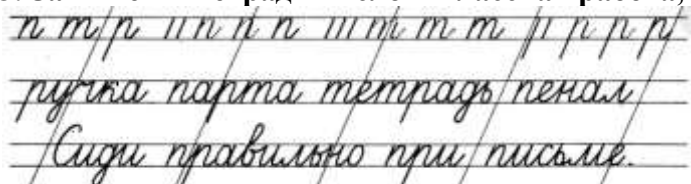 п т р п п п п т т т р р р р
ручка парта тетрадь пенал
Сиди правильно при письме.